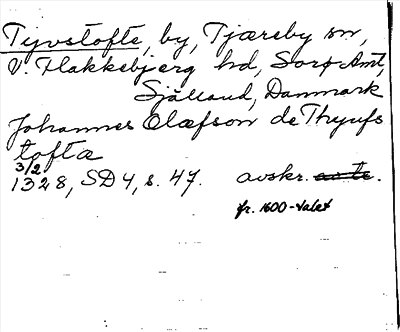 Tyvstofte, by, Tjæreby sn,
V. Flakkebjerg hd, Sorø Amt,
Själland, Danmark
Johannes Olæfson de Thyufs
tofta
3/2
1328, SD 4, s. 47. avskr. orte.
fr. 1600-talet